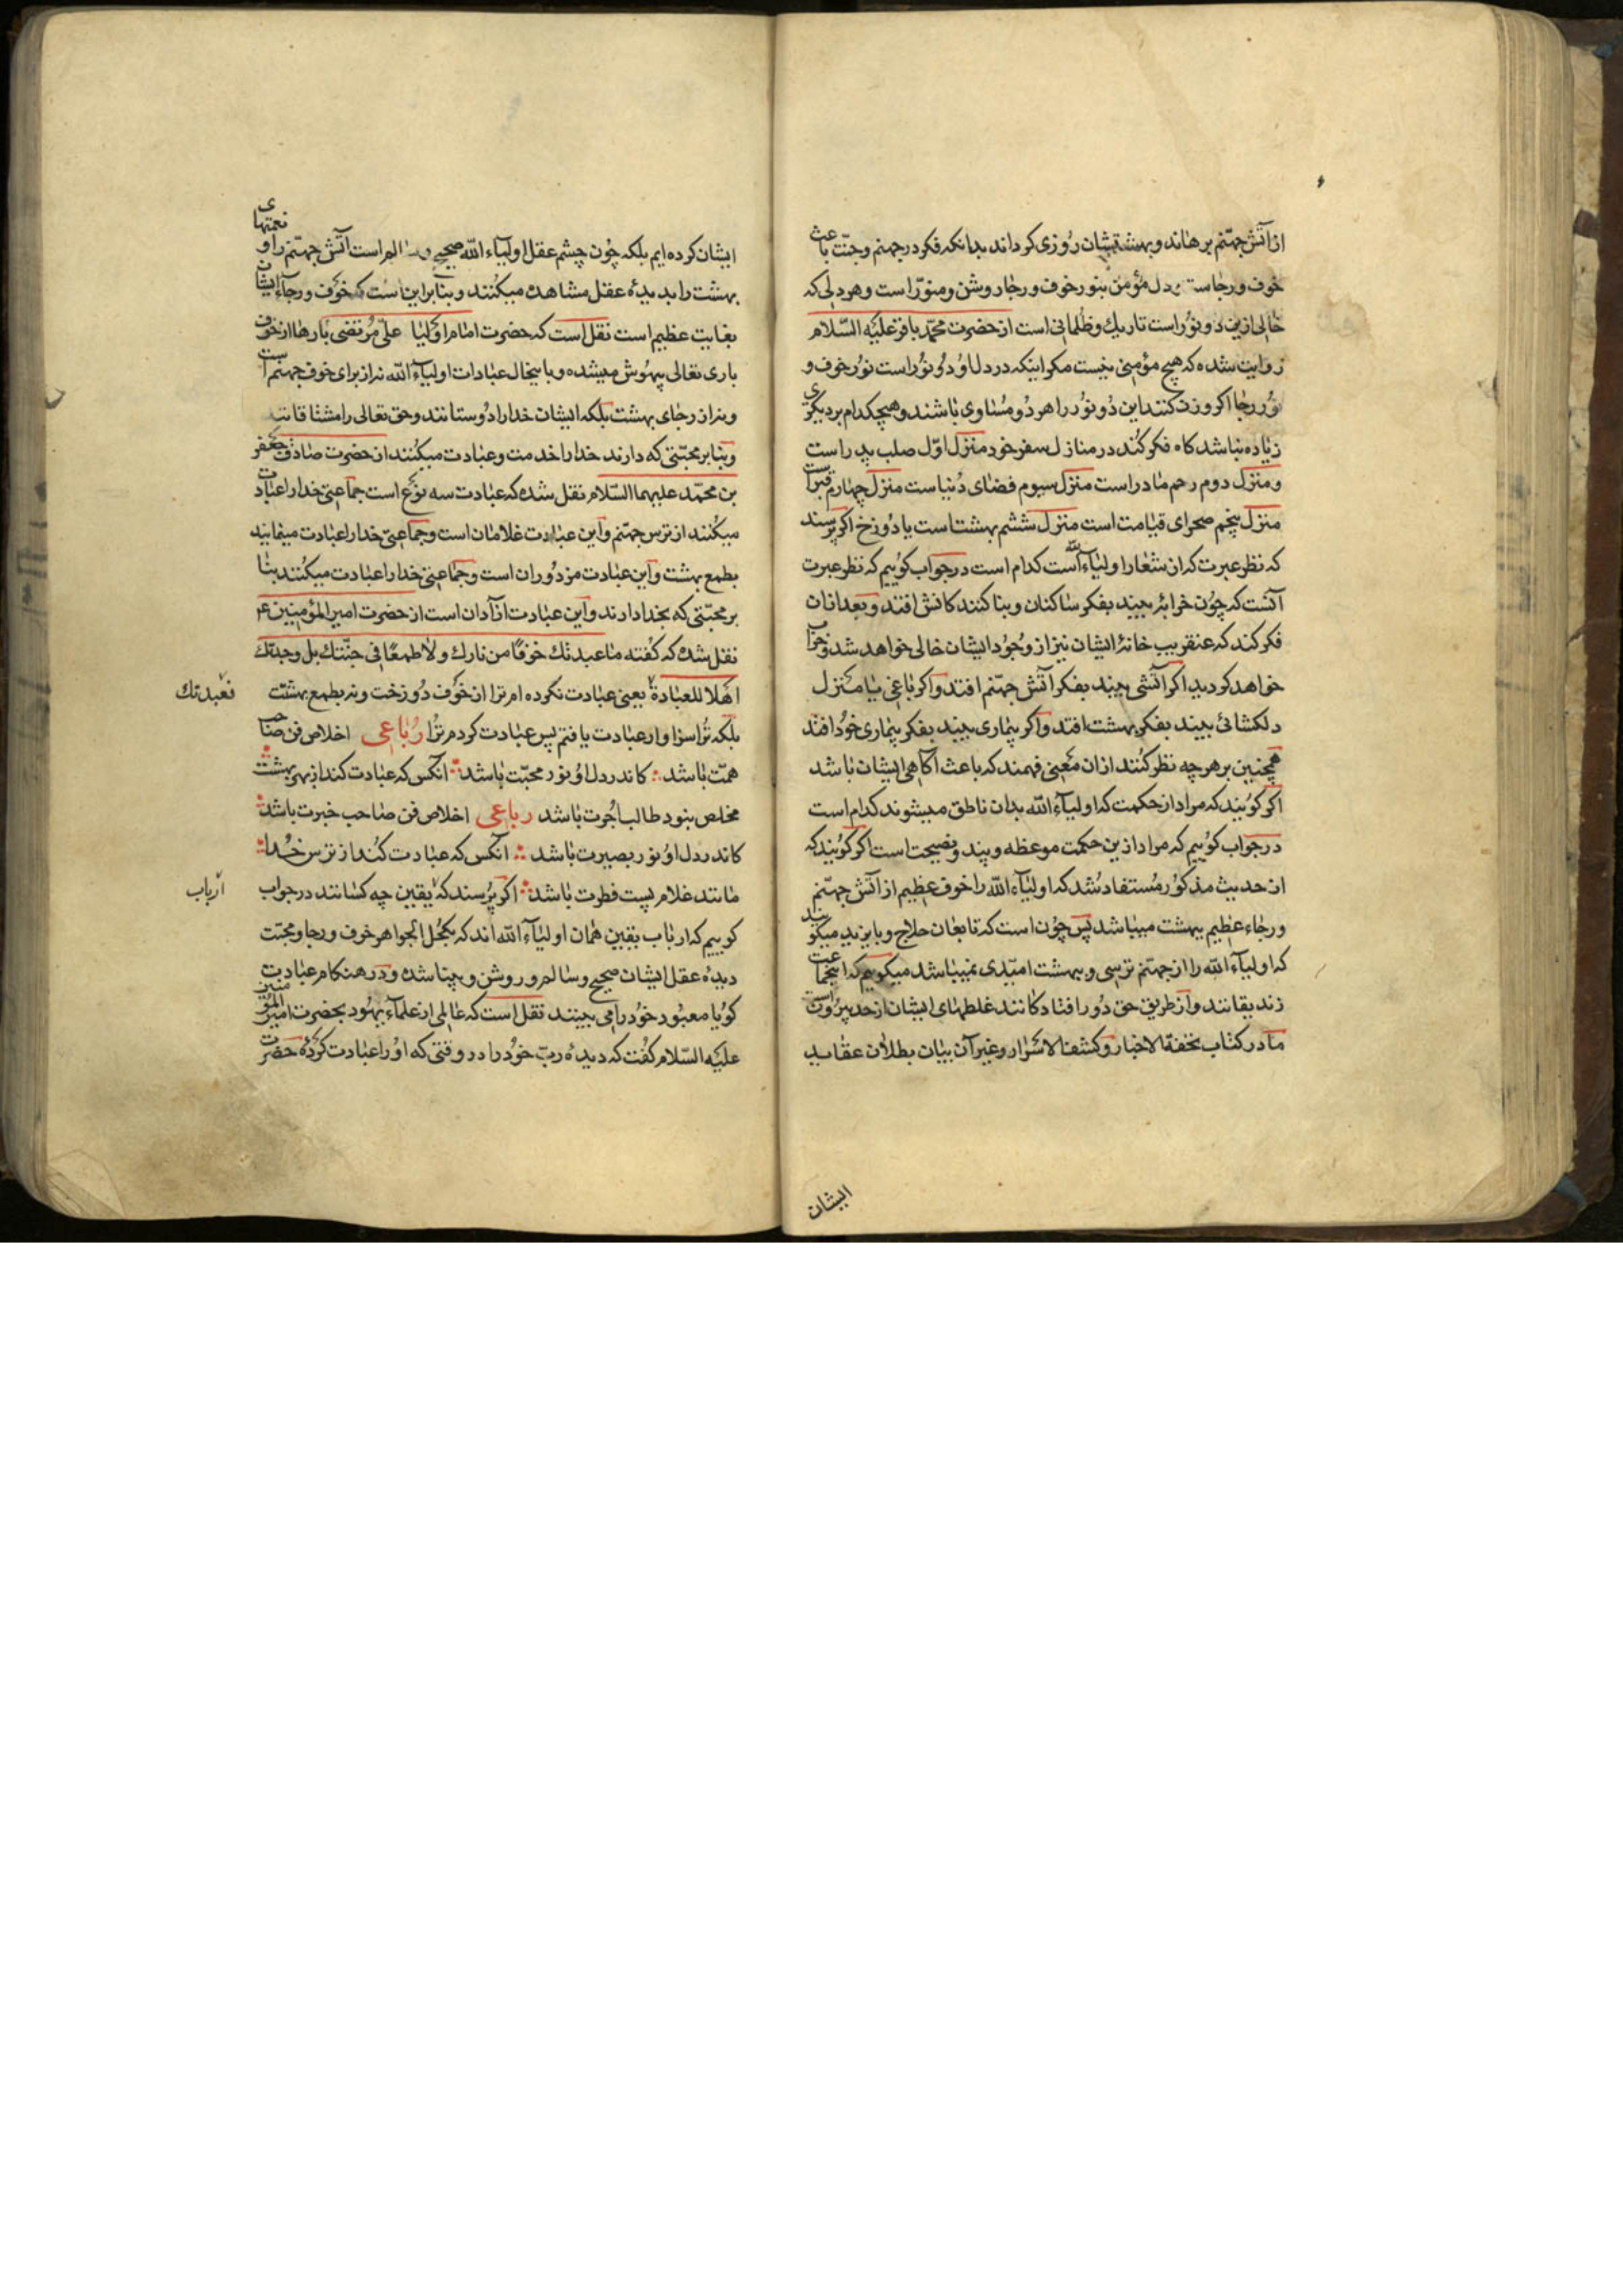 از آتش جهنم برهاند و بهشتیشان روزی کرداند بدانکه فکر در جهنم و جنت باعث
خوف و رجاست دل مؤمن بنور خوف و رجا روشن و منور است و هر دلی که
خالی ازین دو نور است تاریك و ظلمانی است از حضرت محمد باقر علیه السلام
روایت شده که هیچ مؤمنی نیست مکر اینکه در دل او دو نور است نور خوف و
نور رجا اکر وزن کنند این دو نور را هر دو مساوی باشند و هیچکدام بر دیکری
زیاده نباشد کاه فکر کند در منازل سفر خود منزل اول صلب پدر است
و منزل دوم رحم مادر است منزل سیوم فضای دنیاست منزل چهارم قبر است
منزل پنجم صحرای قیامت است منزل ششم بهشت است یا دوزخ اکر پرسند
که نظر عبرت که از شعار اولیاء الله است کدام است در جواب کوییم که نظر عبرت
آنست که چون خرابهٔ بیند بفکر ساکنان و بنا کنندکانش افتد و بعد از آن
فکر کند که عنقریب خانهٔ ایشان نیز از وجود ایشان خالی خواهد شد و خراب
خواهد کردید اکر آتشی بیند بفکر آتش جهنم افتد و اکر باغی یا منزل
دلکشائی بیند بفکر بهشت افتد و اکر بیماری بیند بفکر بیماری خود افتد
همچنین بر هر چه نظر کنند از آن معنی فهمند که باعث آکاهی ایشان باشد
اکر کویند که مراد از حکمت که اولیاء الله بدان ناطق میشوند کدام است
در جواب کوییم که مراد ازین حکمت موعظه و پند و نصیحت است اکر کویند که
از حدیث مذکور مستفاد شد که اولیاء الله را خوف عظیم از آتش جهنم
و رجاء عظیم ببهشت میباشد پس چون است که تابعان حلاج و بایزید میکویند
که اولیاء الله را از جهنم ترسی و ببهشت امیدی نمیباشد میکوییم که اینجماعت
زندیقانند و از طریق حق دور افتادکانند غلطهای ایشان از حد بیرونست
ما در کتاب تحفة الاخیار و کشف الاسرار و غیر آن بیان بطلان عقاید
ایشان
ایشان کرده ایم بلکه چون چشم عقل اولیاء الله صحیح و سالم است آتش جهنم را و نعمتهای
بهشت را بدیدهٔ عقل مشاهده میکنند و بنا براین است که خوف و رجاء ایشان
بغایت عظیم است نقل است که حضرت امام اولیا علی مرتضی بارها از خوف
باری تعالی بیهوش میشده و با اینحال عبادات اولیاء الله نه از برای خوف جهنم است
و نه از رجای بهشت بلکه ایشان خدا را دوستانند و حق تعالی را مشتاقانند
و بنا بر محبتی که دارند خدا را خدمت و عبادت میکنند از حضرت صادق جعفر
بن محمد علیهما السلام نقل شده که عبادت سه نوع است جماعتی خدا را عبادت
میکنند از ترس جهنم و این عبادت غلامان است و جماعتی خدا را عبادت مینمایند
بطمع بهشت و این عبادت مزدوران است و جماعتی خدا را عبادت میکنند بنا
بر محبتی که بخدا دارند و این عبادت آزادان است از حضرت امیر المؤمنین ع
نقل شده که کفته ما عبدتك خوفًا من نارك و لا طمعًا فی جنتك بل وجدتك
اهلا للعبادة یعنی عبادت نکرده ام ترا از خوف دوزخت و نه بطمع بهشت
فعبدتك
بلکه ترا سزاوار عبادت یافتم پس عبادت کردم ترا رباعی اخلاص فن صاحب
همت باشد کاندر دل او نور محبت باشد آنکس که عبادت کند از بهر بهشت
مخلص نبود طالب اجرت باشد رباعی اخلاص فن صاحب خبرت باشد
کاندر دل او نور بصیرت باشد آنکس که عبادت کند از ترس خدا
مانند غلام پست فطرت باشد اکر پرسند که یقین چه کسانند در جواب
ارباب
کوییم که ارباب یقین همان اولیاء الله اند که بکحل الجواهر خوف و رجا و محبت
دیدهٔ عقل ایشان صحیح و سالم و روشن و بینا شده و در هنکام عبادت
کویا معبود خود را می بینند نقل است که عالمی از علماء یهود بحضرت امیر المؤمنین
علیه السلام کفت که دیدهٔ رب خود را در وقتی که او را عبادت کردهٔ حضرت